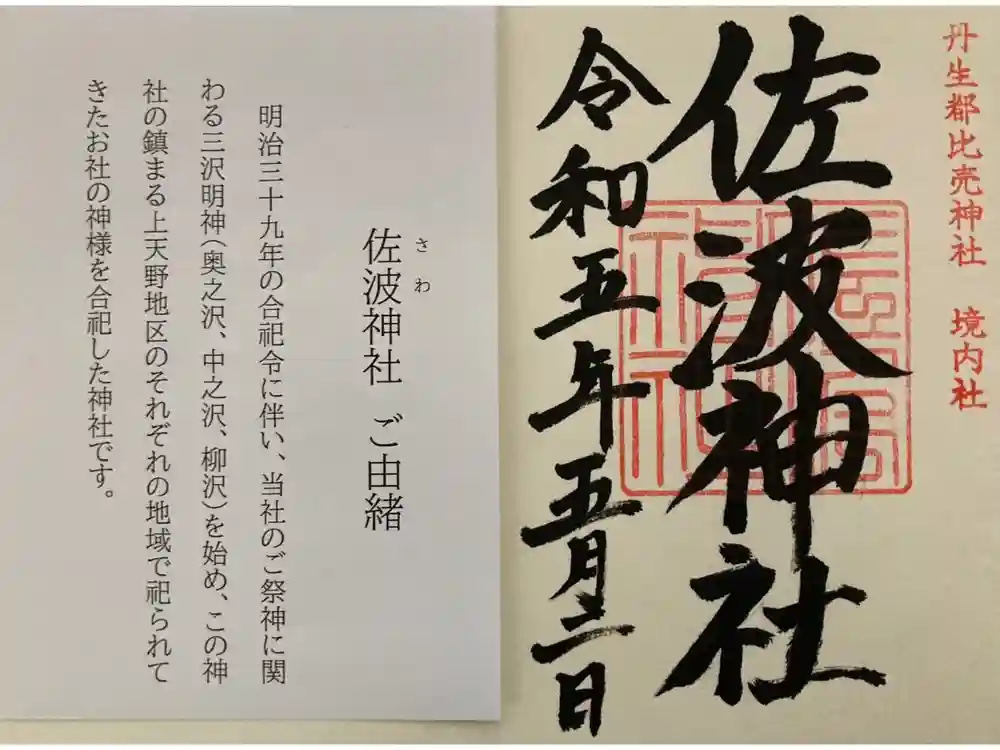 丹生都比売神社 境内社
佐波神社
令和五年五月二日
さわ
佐波神社 ご由緒
明治三十九年の合祀令に伴い、当社のご祭神に関
わる三沢明神(奥之沢、中之沢、柳沢)を始め、この神
社の鎮まる上天野地区のそれぞれの地域で祀られて
きたお社の神様を合祀した神社です。